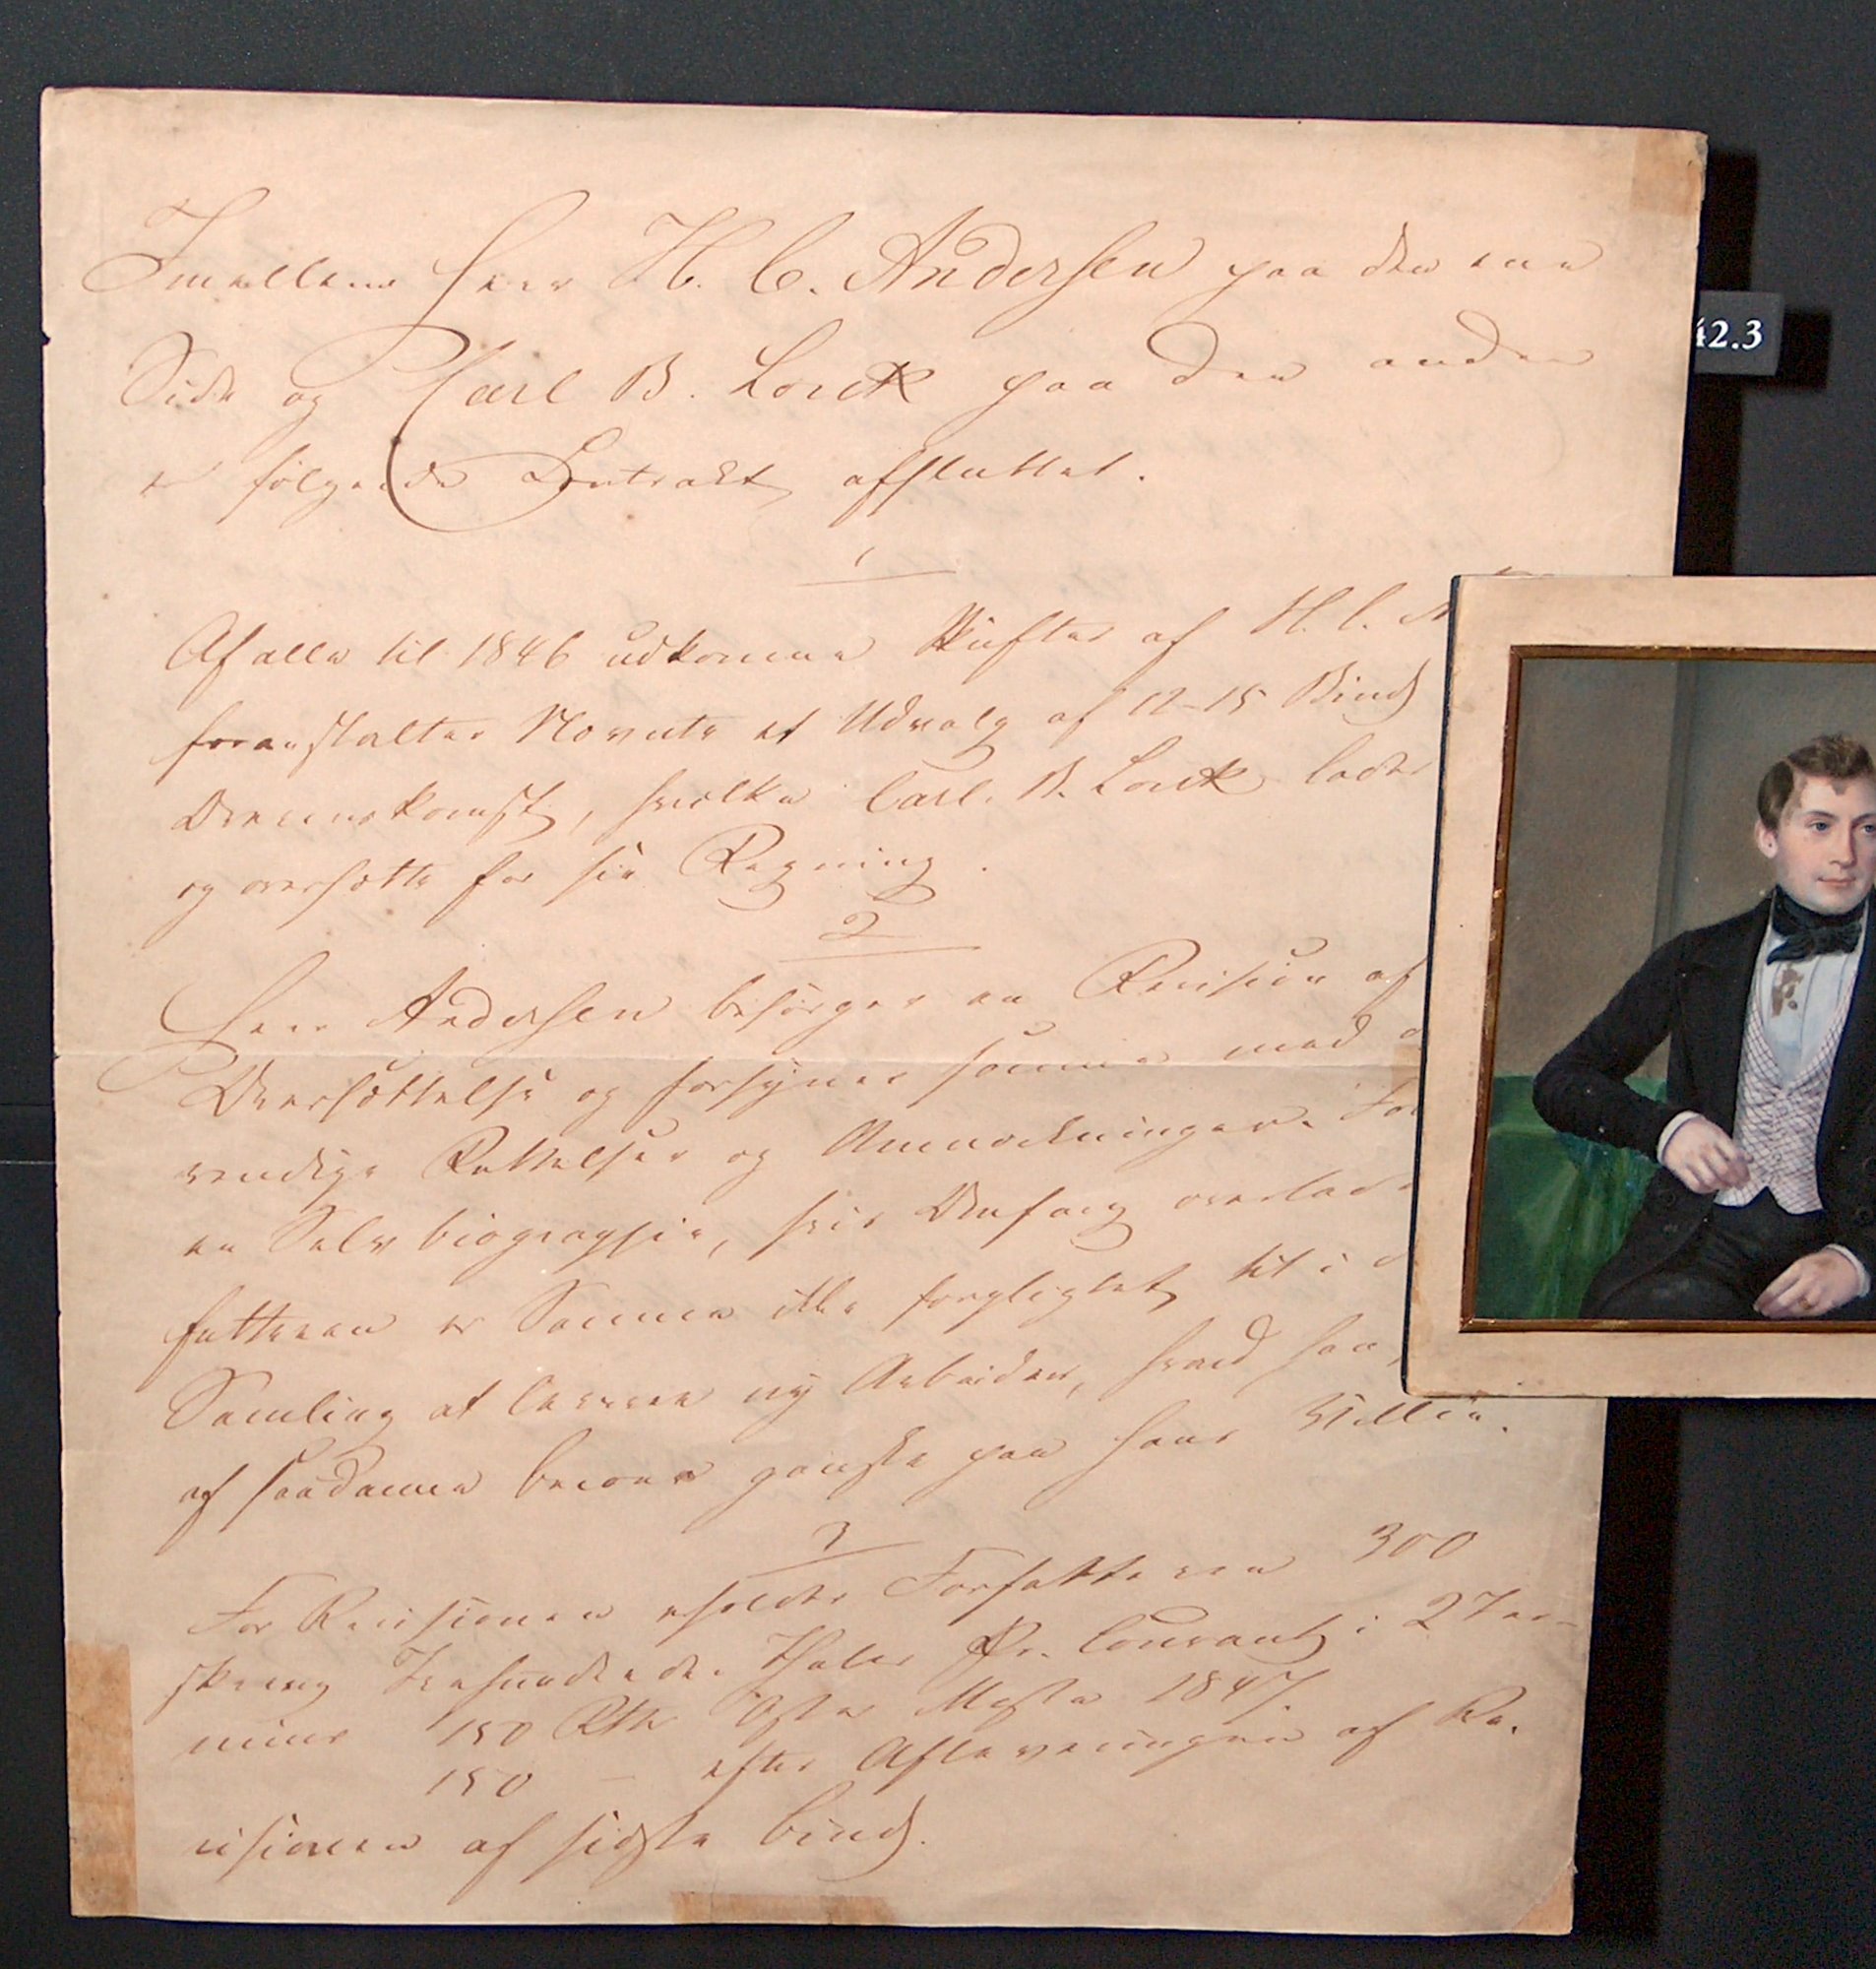 Imellem Herr H. C. Andersen paa den ene
Side og Carl B. Lorck paa den anden
er følgende Contrakt afsluttet.
1
Af alle til 1846 udkomne Skrifter af H. C. A
foranstalter Novnte et Udvalg af 12-15 Bind
Overenskomst, hvilke Carl B. Lorck lader
og oversætte for sin Regning.
2
Herr Andersen besørger en Revision af
Oversættelse og forsyner samme med
vendige Rettelser og Anmærkninger. For
en Selvbiographie, hvis Omfang overlades
fatteren er Samme ikke forpligtet til i
Samling at levere ny Arbeider, hvad han
af saadanne beroer ganske paa hans Villie.
3
For Revisionen erholder Forfatteren 300
skriv Trehundrede Thaler Pr. Courant i 2 Ter-
miner 150 Rth Oster Messe 1847.
150 — efter Afleveringen af Re-
visionen af sidste Bind.
42.3